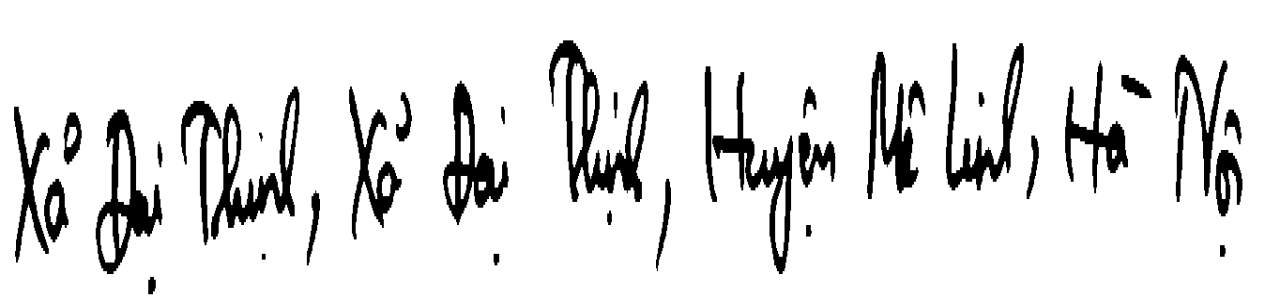 Xã Đại Thịnh, Xã Đại Thịnh, Huyện Mê Linh, Hà Nội